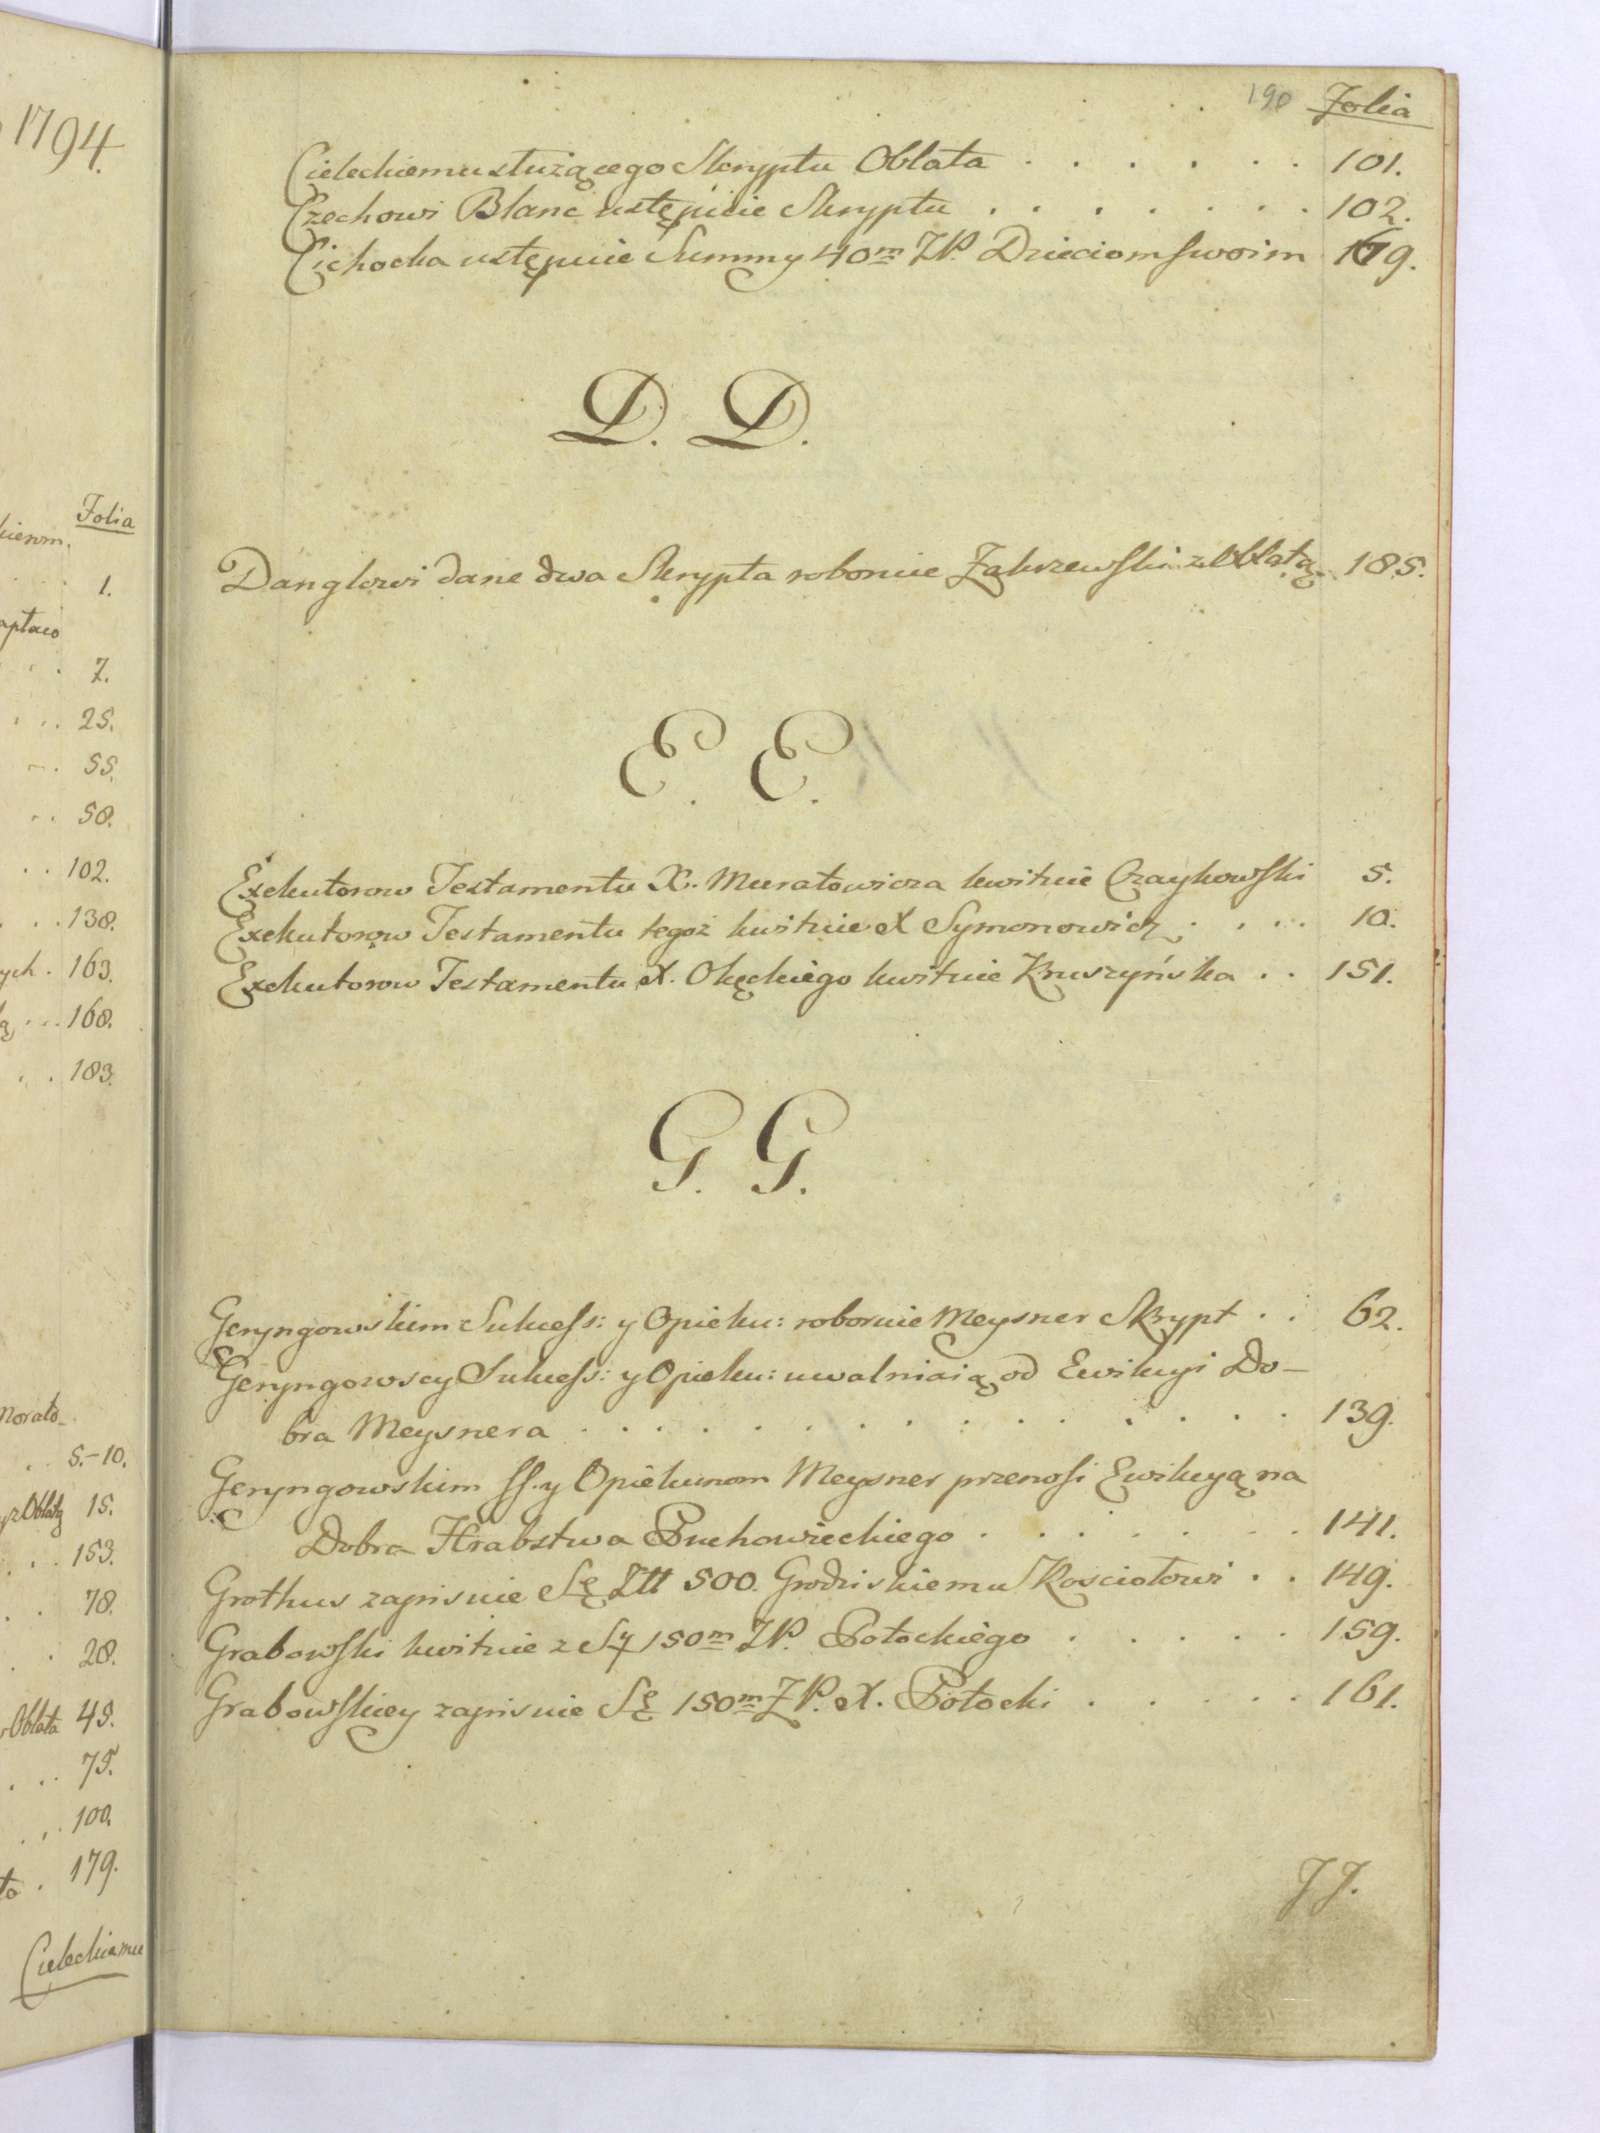 1794.
Folia
1.
7.
25.
55.
58.
102.
138.
163.
168.
183.
5.-10.
15.
153.
78.
28.
Oblata 45.
75.
100.
179.
Cieleckiemu
190 Folia
Cieleckiemu służącego Skryptu Oblata . . . . . . 101.
Czechowi Blanc ustępuie Skryptu . . . . . . . 102.
Cichocka ustępuie Summy 40m ZP. Dzieciom swoim 179.
D. D.
Danglowi dane dwa Skrypta roboruie Zakrzewski z Oblatą 185.
E. E.
Exekutorow Testamentu X. Muratowicza kwituie Czaykowski 5.
Exekutorow Testamentu tegoż kwituie X Symonowicz . . . . 10.
Exekutorow Testamentu X. Okęckiego kwituie Kruszyńska . . 151.
G. G.
Geryngowskim Sukcess: y Opieku: roboruie Meysner Skrypt . . 62.
Geryngowscy Sukcess: y Opieku: uwalniaią od Ewikcyi Do-
bra Meysnera . . . . . . . . . . . . . 139.
Geryngowskim SS. y Opiekunom Meysner przenosi Ewikcyą na
Dobra Hrabstwa Puchowieckiego . . . . . . . 141.
Grothus zapisuie Sę Ztt 500. Grodziskiemu Kosciołowi . . 149.
Grabowski kwituie z Sy 150m ZP. Potockiego . . . . . 159.
Grabowskiey zapisuie Sę 150m ZP. X. Potocki . . . . . 161.
JJ.